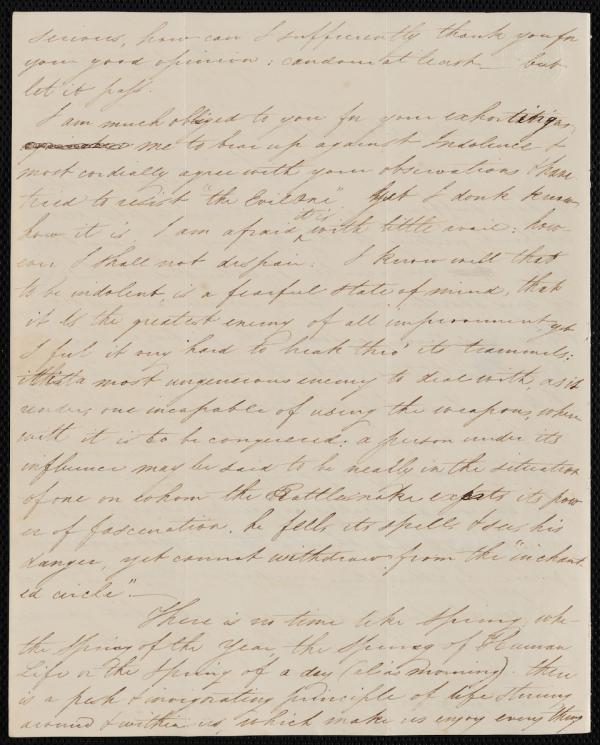 serious, how can I sufficiently thank you for
your good opinion; candour at least — but
let it pass.
I am much obliged to you for your exhortings
me to bear up against Indolence &
most cordially agree with your observations & have
tried to resist "the Evil One". Yet I donk know
how it is I am afraid it is with little avail: how
ever I shall not despair. I know well that
to be indolent, is a fearful state of mind, that
it is the greatest enemy of all improvement, yet
I feel it very hard to break thro' its trammels;
it is a most ungenerous enemy to deal with, as it
renders one incapable of using the weapons, where
with it is to be conquered; a person under its
influence may be said to be really in the situation
of one on whom the Rattlesnake exerts its pow
er of fascination. he feels its spells & sees his
danger, yet cannot withdraw from the "inchant
ed circle" —
There is no time like Spring, whe
the Spring of the Year, the Spring of Human
Life or the Spring of a day (alias Morning). then
is a fresh & invigorating principle of life
around & within us, which make us enjoy every thing